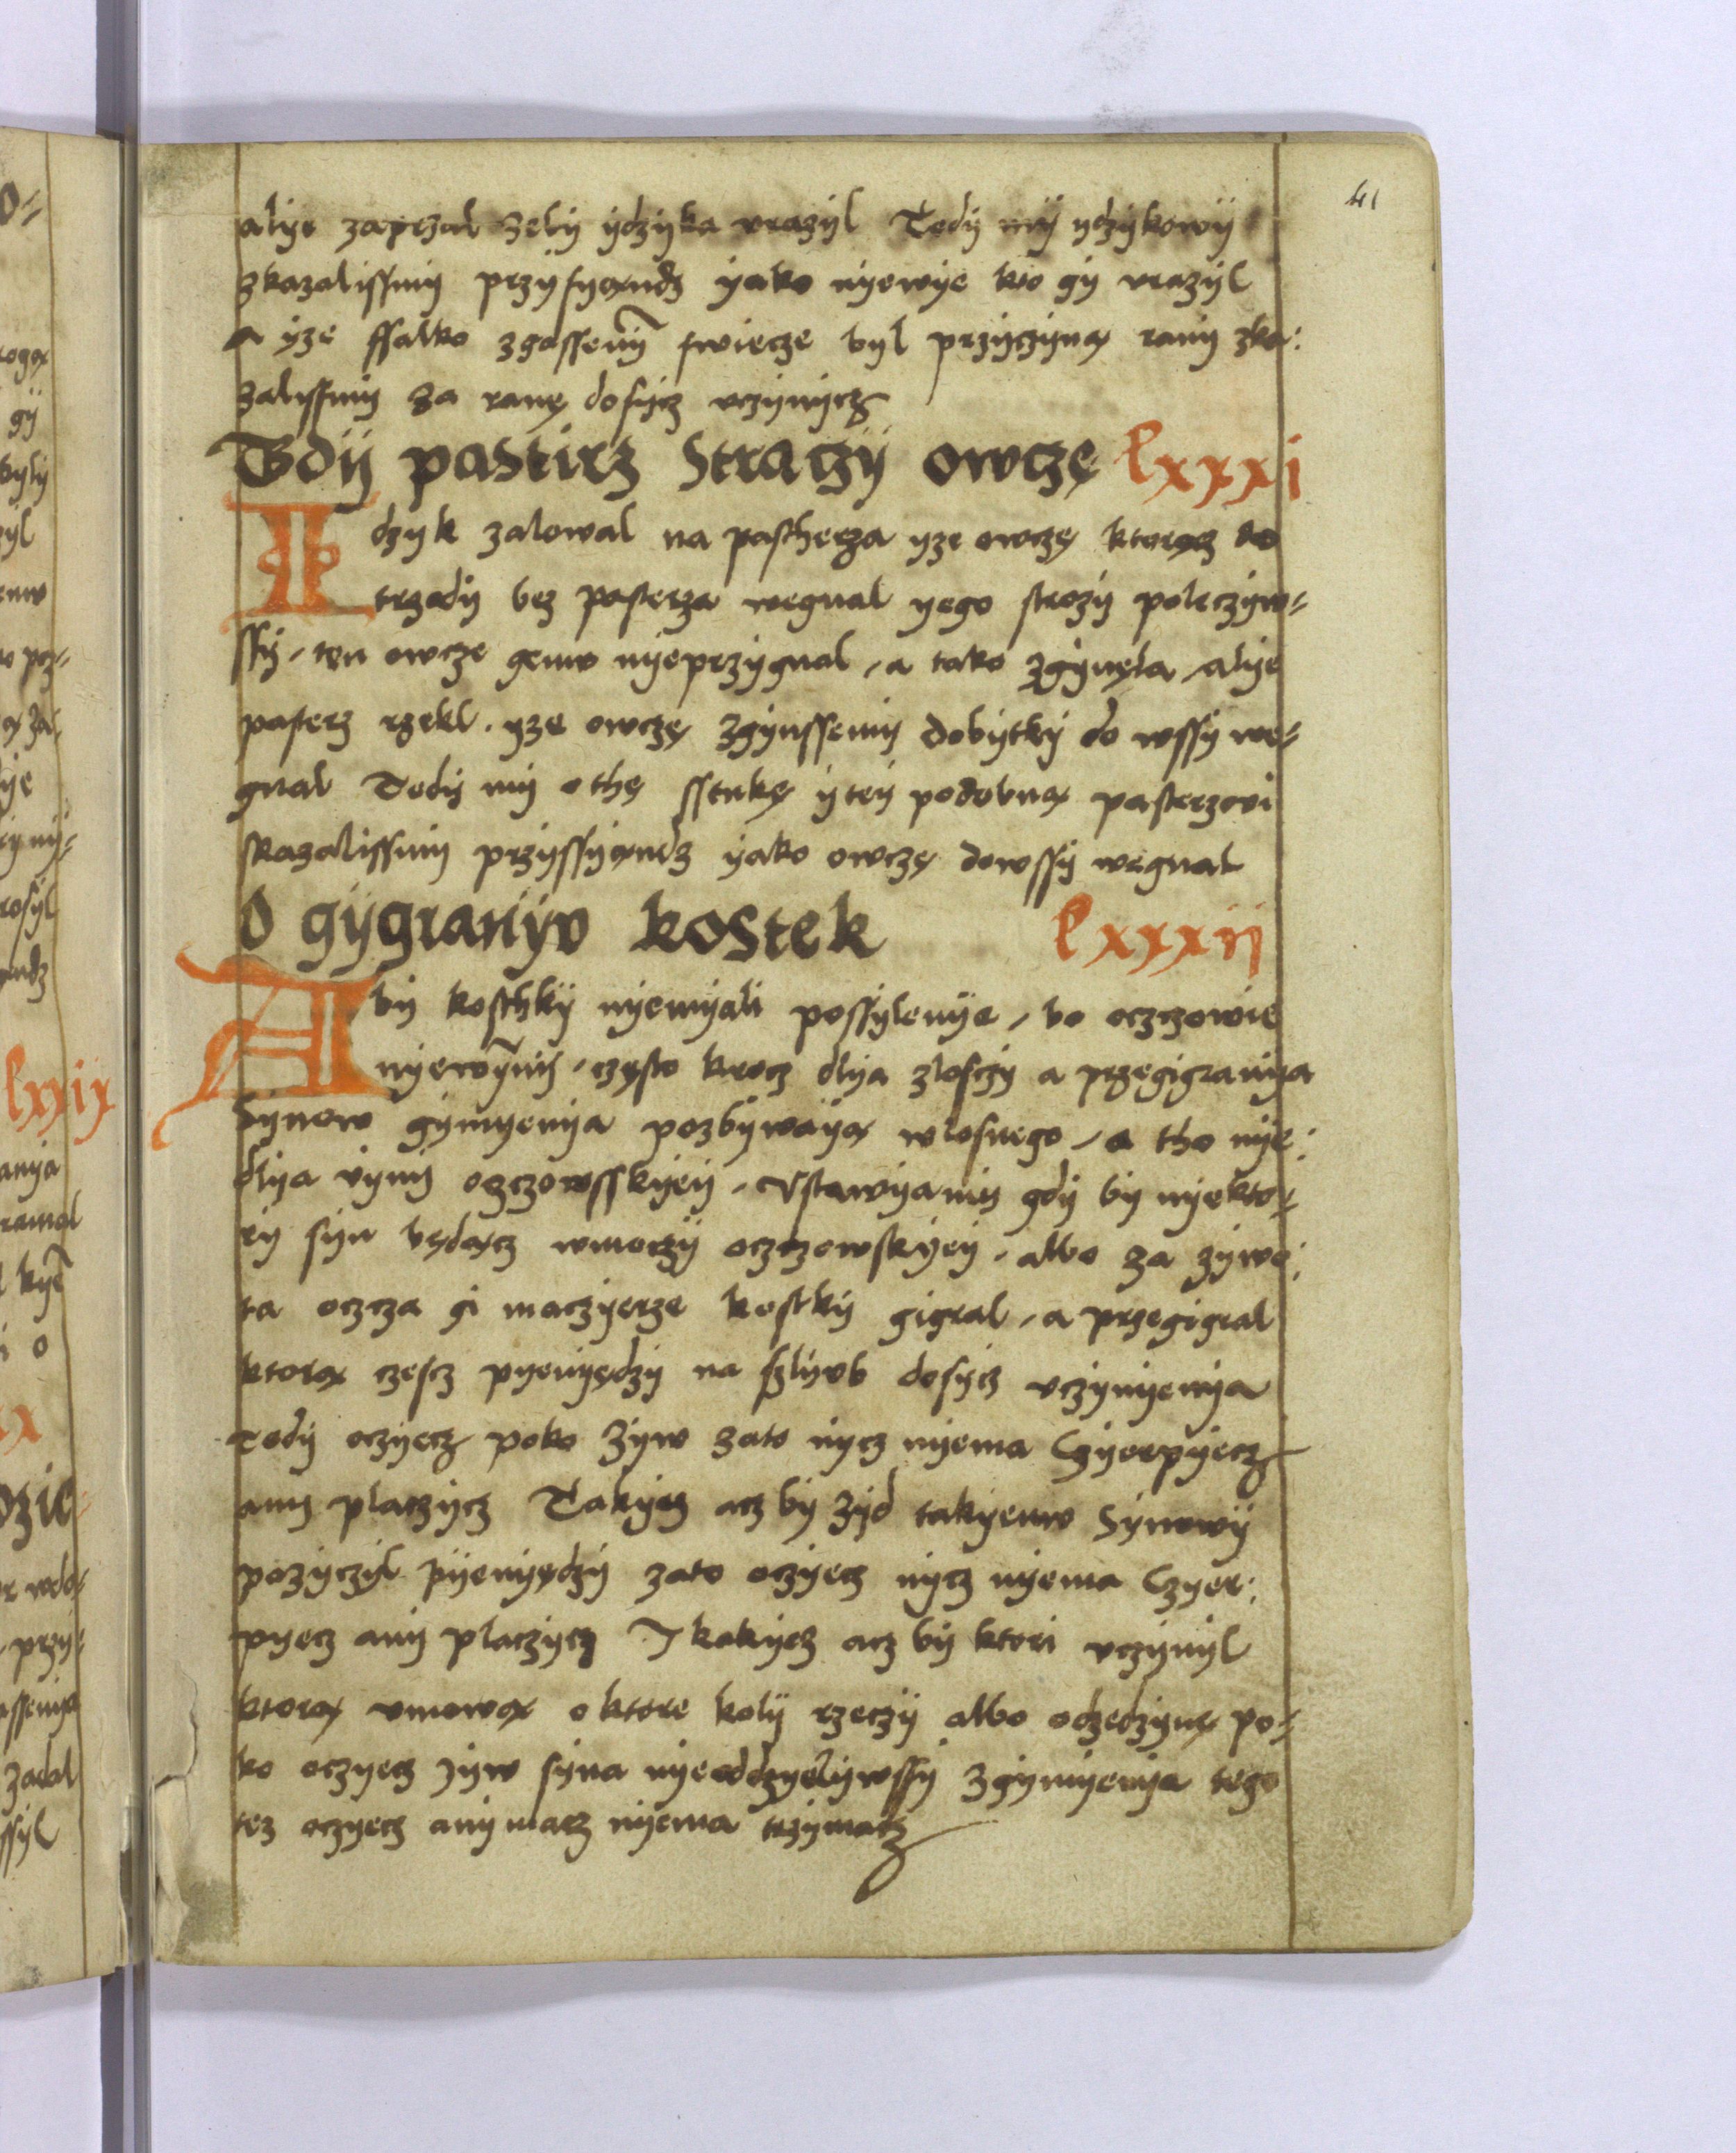 41
alye zaprzal zeby ydzyka vrazyl Tedy my ydzykowy
skazalissmy przysyøndz yako nyewye kto gy vrazyl
a yze ssalko zgassenỹ swiecze byl przyczynø rany ska:
zalissmy za ranę dosycz vczynycz
Gdy pastirz straczy owczę lxxxi
Idzyk zalowal na pastherza yze owczę ktoręcz do
trzody bez pasterza wegnal yego strozy poleczyw-
ssy, ten owcze gemv nyeprzygnal, a tako zgynęla, alye
pasterz rzekl. yze owczę zgynssemy dobytky do wssy we-
gnal Tedy my o thę sstukę y tey podobnø pasterzovi
skazalissmy przyssyøndz yako owczę dowssy wegnal
O gygranyv kostek lxxxii
Aby kosthky nyemyali possylenye, bo oczczowie
nyewỹny, często krocz dlya zlosczy a przegigranya
Synow gymyenya pozbywayø wlosnego, a tho nye:
dlya vyny oczczowsskyey, Vstawyamy gdy by nyekto-
ry syn będøcz wmoczy oczczowskyey, albo za zywo:
ta oczcza gi maczyerze kostky gigral, a przegigral
ktorø czescz pyenyędzy na szlyvb dosycz vczynyenya
Tedy oczyecz poko zyw zato nycz nyema Czyerpyecz
any placzycz Takyez acz by zyd takyemv Synowy
pozyczyl pyenyędzy zato oczyecz nycz nyema Czyer:
pyecz any placzycz I kakyez acz by ktori vczynyl
ktorø vmowø o ktore koly rzeczy albo odzedzynę po-
ko oczyecz zyw syna nyeoddzyelywssy zgymyenya tego
tez oczyecz any macz nyema trzymacz